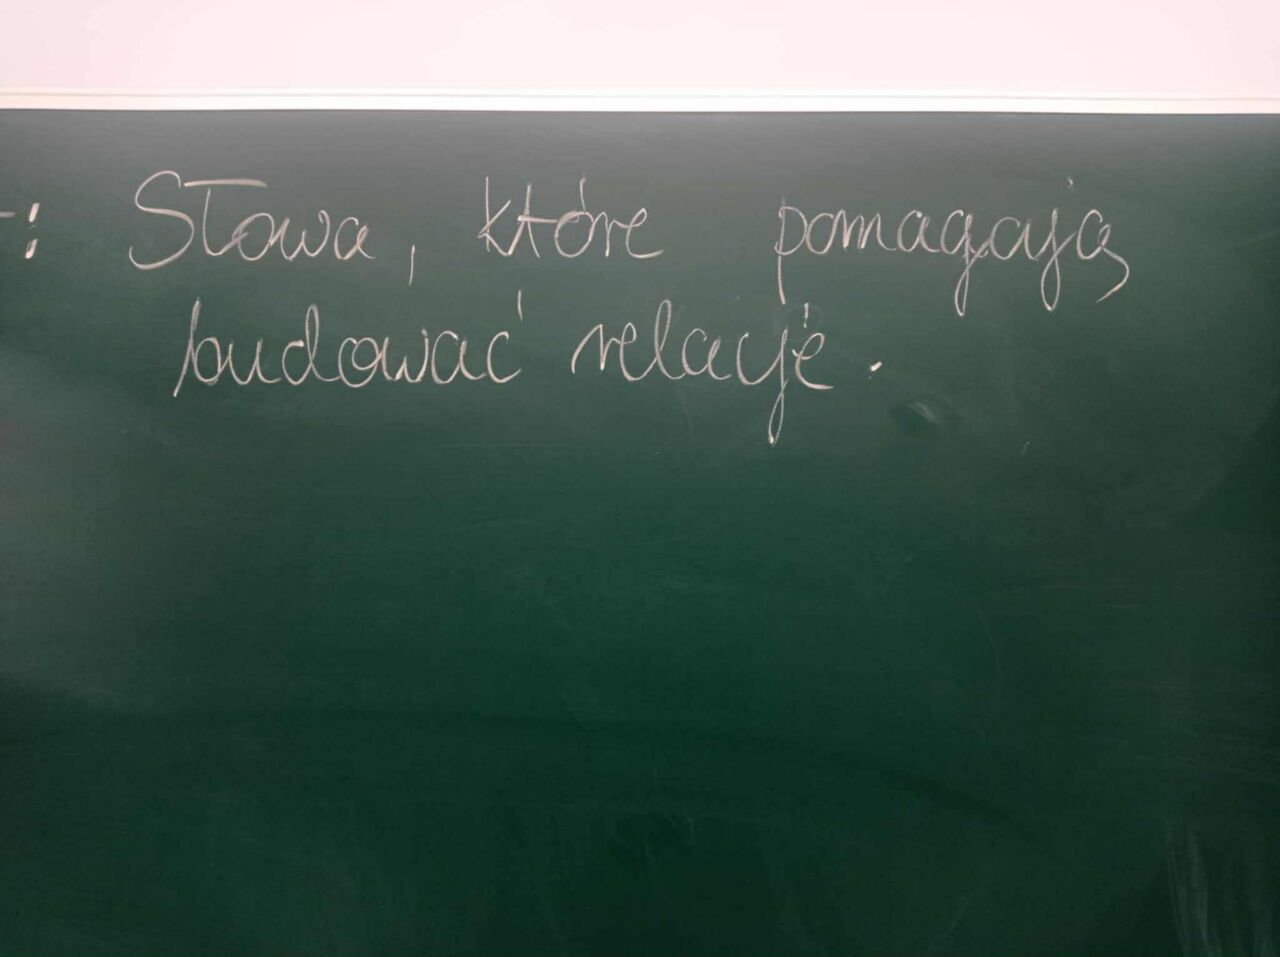 : Słowa, które pomagają
budować relacje.